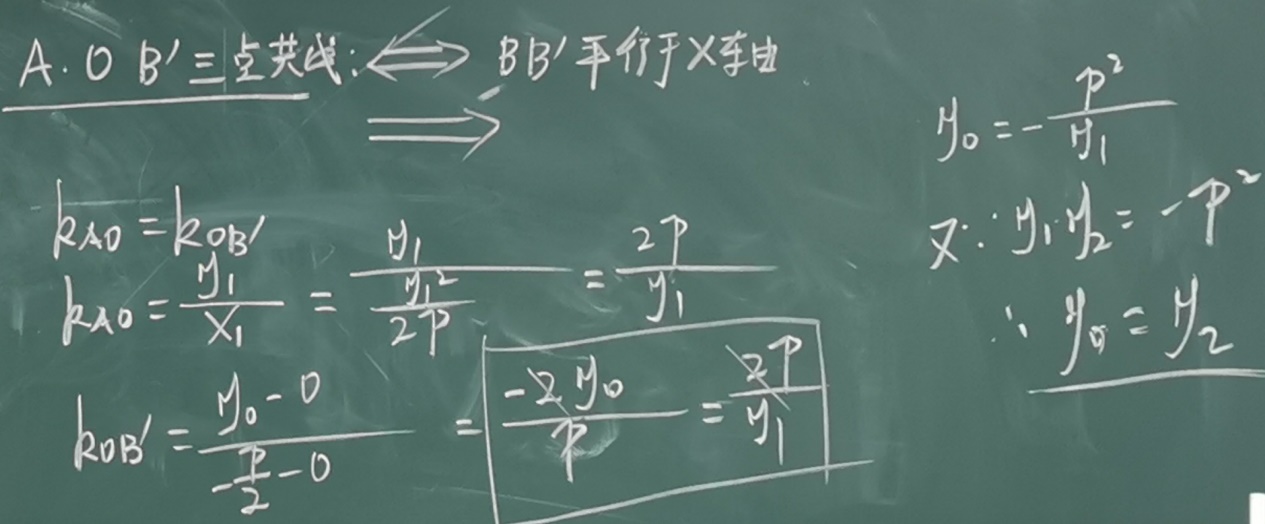 A.O B′三点共线:⟺ BB′平行于X轴
⟹
k_{AO} = k_{OB′}
k_{AO} = \frac{y_1}{x_1} = \frac{y_1}{\frac{y_1^2}{2p}} = \frac{2p}{y_1}
k_{OB′} = \frac{y_0-0}{-\frac{p}{2}-0} = \frac{-2y_0}{p} = \frac{2p}{y_1}
y_0 = -\frac{p^2}{y_1}
又∵ y_1·y_2 = -p^2
∴ y_0 = y_2